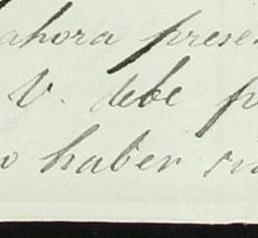 ahora prese
V. debe p
o haber si